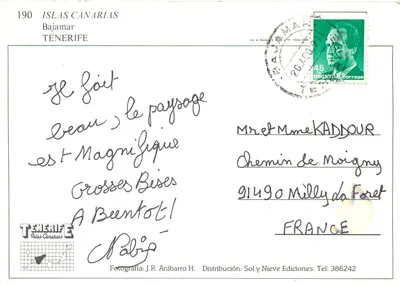 190 ISLAS CANARIAS
Bajamar
TENERIFE
BAJAMAR
20 AGO
45
correos
Il fait
beau, le paysage
est Magnifique
Grosses Bises
A Bientot!
Mr et Mme KADDOUR
Chemin de Moigny
91490 Milly La Foret
FRANCE
TENERIFE
Islas Canarias
Fotografía: J.R. Anibarro H. Distribución: Sol y Nieve Ediciones. Tel: 386242